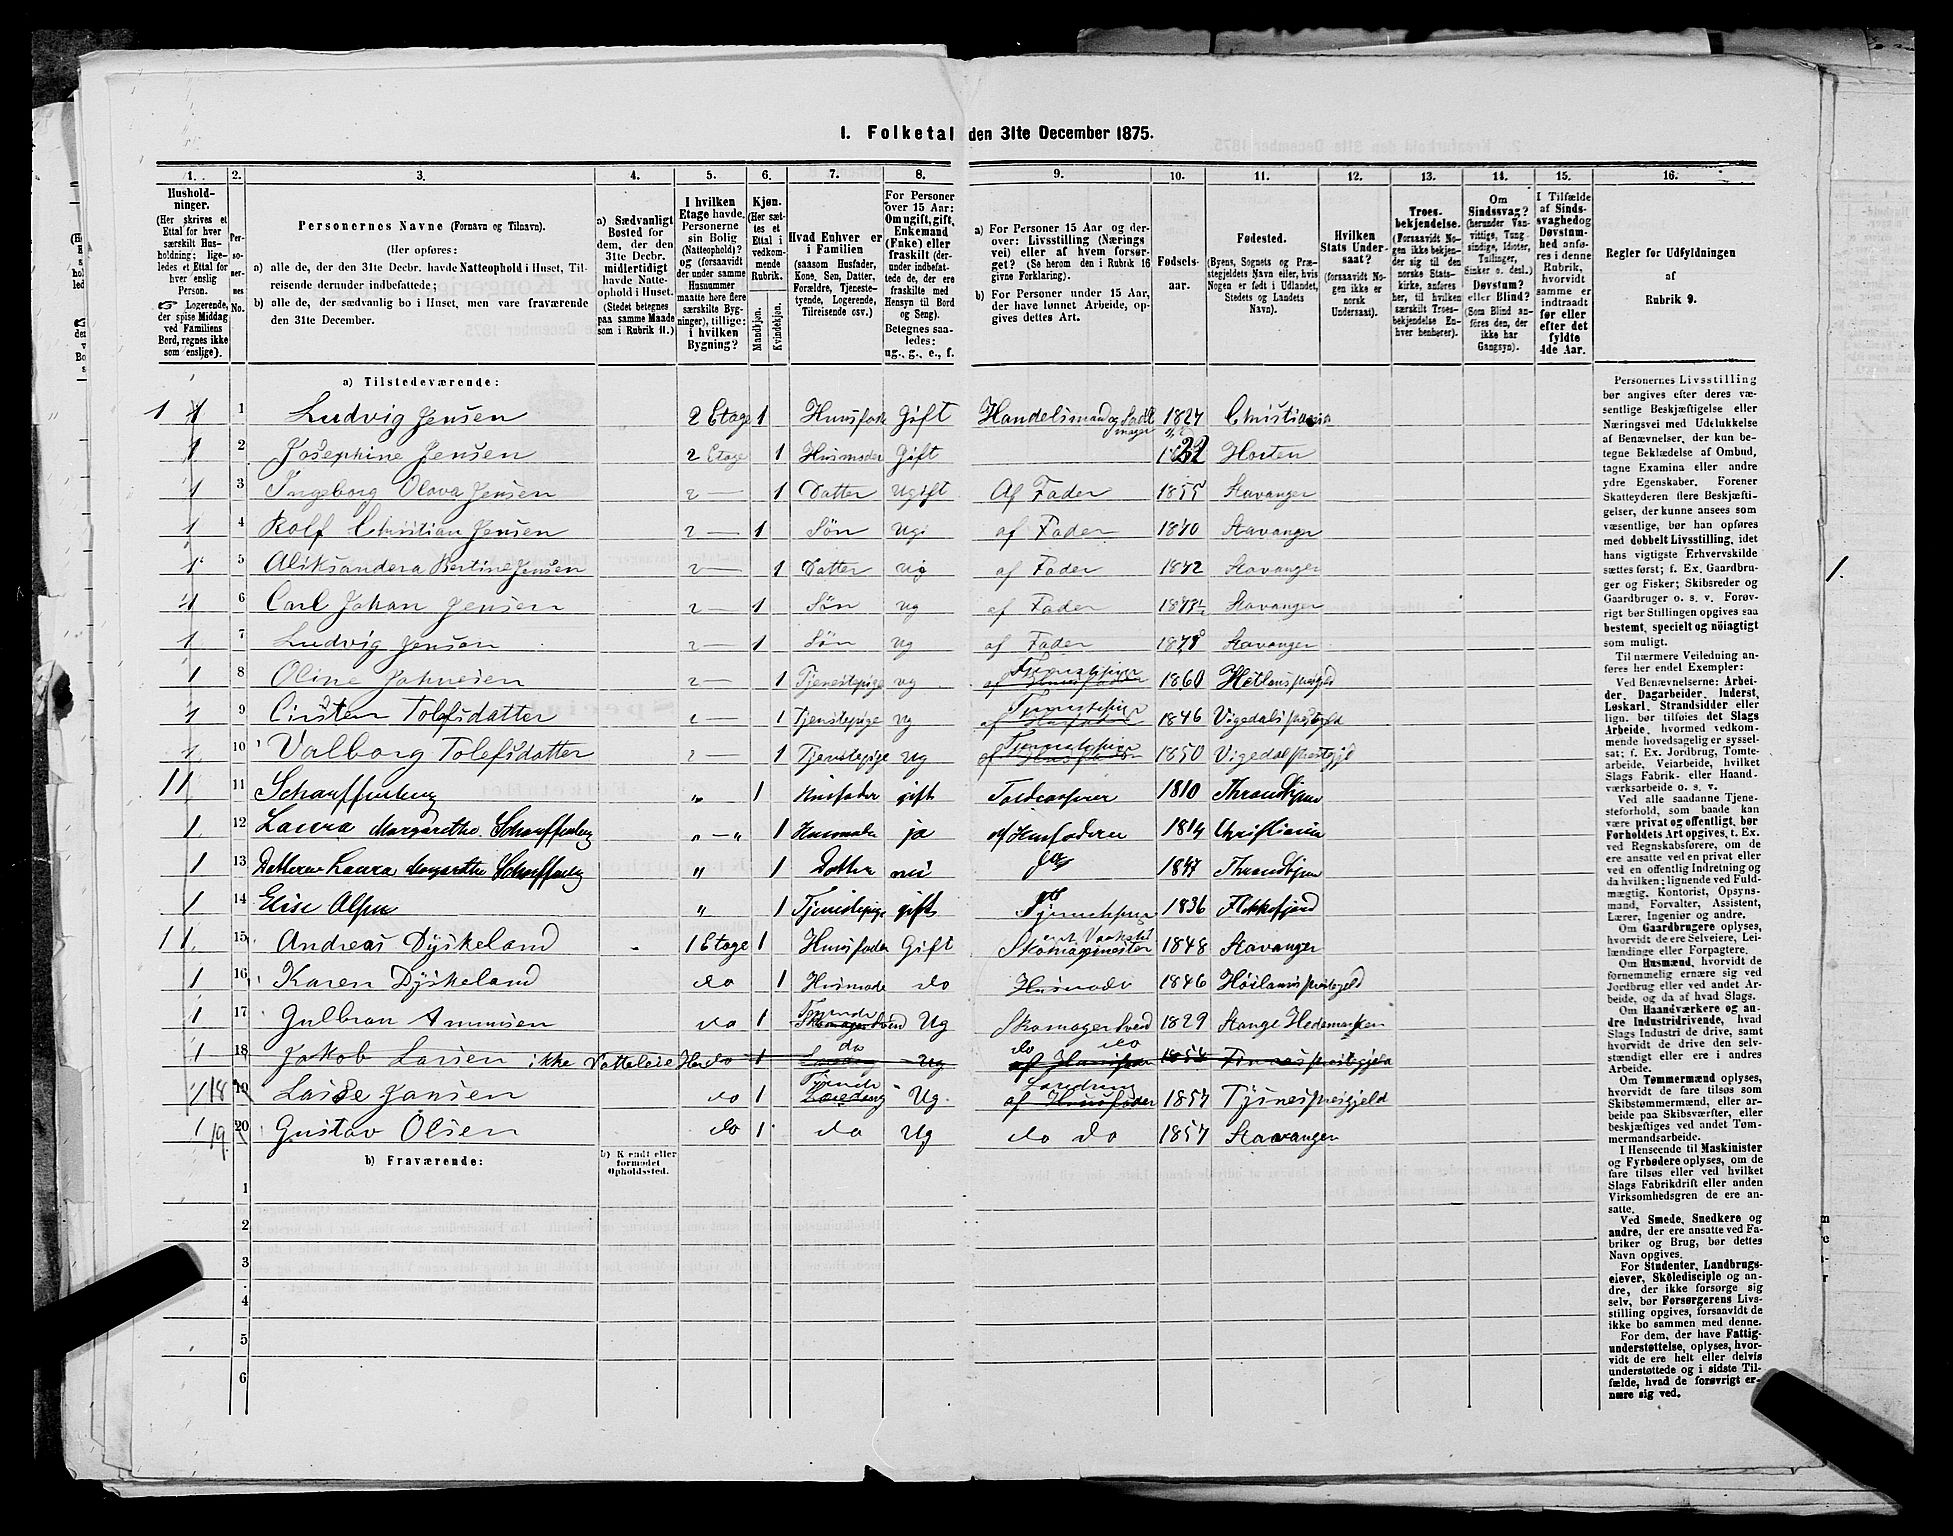 1. Folketal den 31te December 1875.
1. 2. 3. 4. 5. 6. 7. 8. 9. 10. 11. 12. 13. 14. 15. 16.
Hushold-
ninger.
(Her skrives et
Ettal for hver
særskilt Hus-
holdning; lige-
ledes et Ettal for
hver enslig
Person.
☞ Logerende,
der spise Middag
ved Familiens
Bord, regnes ikke
som enslige).
Per-
soner-
nes
No.
Personernes Navne (Fornavn og Tilnavn).
(Her opføres:
a) alle de, der den 31te Decbr. havde Natteophold i Huset, Til-
reisende derunder indbefattede;
b) alle de, der sædvanlig bo i Huset, men vare fraværende
den 31te December.
a) Sædvanligt
Bosted for
dem, der den
31te Decbr.
midlertidigt
havde Natte-
ophold i Huset.
(Stedet betegnes
paa samme Maade
som i Rubrik 11.)
I hvilken
Etage havde
Personerne
sin Bolig
(Natteophold)?
og (forsaavidt
der under samme
Husnummer
maatte høre flere
særskilte Byg-
ninger), tillige:
i hvilken
Bygning?
Kjøn.
(Her sæt-
tes et
Ettal i
vedkom-
mende
Rubrik.
Mandkjøn.
Kvindekjøn.
Hvad Enhver er
i Familien
(saasom Husfader,
Kone, Søn, Datter,
Forældre, Tjeneste-
tyende, Logerende,
Tilreisende osv.)
For Personer
over 15 Aar:
Om ugift, gift,
Enkemand
(Enke) eller
fraskilt (der-
under indbefat-
tede de, der ere
fraskilte med
Hensyn til Bord
og Seng).
Betegnes saa-
ledes:
ug., g., e., f.
a) For Personer 15 Aar og der-
over: Livsstilling (Nærings
vei) eller af hvem forsør-
get? (Se herom den i Rubrik 16
givne Forklaring).
b) For Personer under 15 Aar,
der have lønnet Arbeide, op-
gives dettes Art.
Fødsels-
aar.
Fødested.
(Byens, Sognets og Præ-
stegjeldets Navn eller, hvis
Nogen er født i Udlandet,
Stedets og Landets
Navn).
Hvilken
Stats Under-
saat?
(forsaavidt No-
gen ikke er
norsk
Undersaat).
Troes-
bekjendelse.
(Forsaavidt No-
gen ikke bekjen-
der sig til den
norske Stats-
kirke, anføres
her, til hvilken
særskilt Troes-
bekjendelse En-
hver henhører).
Om
Sindssvag?
(herunder Van-
vittige, Tung-
sindige, Idioter,
Tullinger,
Sinker o. desl.)
Døvstum?
eller Blind?
(Som Blind an-
føres den, der
ikke har
Gangsyn).
I Tilfælde
af Sinds-
svaghed og
Døvstum-
hed anfø-
res i denne
Rubrik,
hvorvidt
samme er
indtraadt
før eller
efter det
fyldte
4de Aar.
Regler for Udfyldningen
af
Rubrik 9.
a) Tilstedeværende:
1 1 1 Ludvig Jensen 2 Etage 1 Husfader Gift Handelsmand 1827 Christiania
1 2 Josephine Jensen 2 Etage 1 Husmoder Gift Horten
1 3 Ingeborg Olava Jensen 2 — 1 Datter Ugift Af Fader 1855 Stavanger
1 4 Rolf Christian Jensen 2 — 1 Søn Ug af Fader Stavanger
1 5 Aliksandera Bertine Jensen 2 — 1 Datter ug af Fader Stavanger
1 6 Carl Johan Jensen 2 — 1 Søn ug af Fader Stavanger
1 7 Ludvig Jensen 2 — 1 Søn ug af Fader Stavanger
1 8 Oline Johnesen 2 — 1 Tjenestepige ug Tjenestepige 1860
1 9 Cirsten Tolefsdatter 2 — 1 Tjenstepige ug Tjenestepige 1846 Vigedals prestegjeld
1 10 Valborg Tolefsdatter 2 — 1 Tjenstepige ug Tjenestepige 1850 Vigedal prestegjeld
1 1 11 Scharffenberg " 1 Husfader gift 1810 Throndhjem
1 12 Laura Margarethe Scharffenberg " — " 1 Husmoder ja af Husfaderen 1814 Christiania
1 13 Datteren Laura Margarethe Scharffenberg " 1 Datter nei 1847 Throndhjem
1 14 Elise Olsen " 1 Tjenestepige gift 1836 Flekkefjord
1 1 15 Andreas Dyskeland 1 Etage 1 Husfader Gift Skomagermester 1848 Stavanger
1 16 Karen Dyskeland do 1 Husmoder do Husmoder 1846 Høilands prestegjeld
1 17 Gulbran Amunsen do 1 Tjenende Ug Skomagersvend 1829 Stange Hedemarken
1 18 Jakob Larsen ikke do 1 do Ug do do 1854
1 18 19 Lasse Jansen do 1 Tjenende Ug. af Husfader 1857 Tysnes prestgjeld
1 19 20 Gustav Olsen do 1 do Ug do do 1857 Stavanger
b) Fraværende:
b) Kjendt eller
formodet
Opholdssted.
1
2
3
4
5
6
Personernes Livsstilling
bør angives efter deres væ-
sentlige Beskjæftigelse eller
Næringsvei med Udelukkelse
af Benævnelser, der kun be-
tegne Beklædelse af Ombud,
tagne Examina eller andre
ydre Egenskaber. Forener
Skatteyderen flere Beskjæfti-
gelser, der kunne ansees som
væsentlige, bør han opføres
med dobbelt Livsstilling, idet
hans vigtigste Erhvervskilde
sættes først; f. Ex. Gaardbru-
ger og Fisker; Skibsreder og
Gaardbruger o. s. v. Forøv-
rigt bør Stillingen opgives saa
bestemt, specielt og nöiagtigt
som muligt.
Til nærmere Veiledning an-
føres her endel Exempler:
Ved Benævnelserne: Arbei-
der, Dagarbeider, Inderst,
Løskarl, Strandsidder eller
lign. bør tilføies det Slags
Arbeide, hvormed vedkom-
mende hovedsagelig er syssel-
sat; f. Ex. Jordbrug, Tomte-
arbeide, Veiarbeide, hvilket
Slags Fabrik- eller Haand-
værksarbeide o. s. v.
Ved alle saadanne Tjene-
steforhold, som baade kan
være privat og offentligt, bør
Forholdets Art opgives, t. Ex.
ved Regnskabsførere, om de
ere ansatte ved en privat eller
ved en offentlig Indretning og
da hvilken; lignende ved Fuld-
mægtig, Kontorist, Opsyns-
mand, Forvalter, Assistent,
Lærer, Ingeniør og andre.
Om Gaardbrugere oplyses,
hvorvidt de ere Selveiere, Lei-
lændinge eller Forpagtere.
Om Husmænd, hvorvidt de
fornemmelig ernære sig ved
Jordbrug eller ved andet Ar-
beide, og da af hvad Slags.
Om Haandværkere og an-
dre Industridrivende, hvad
Slags Industri de drive, samt
hvorvidt de drive den selv-
stændigt eller ere i andres
Arbeide.
Om Tømmermænd oplyses,
hvorvidt de fare tilsøs som
Skibstømmermænd, eller ar-
beide paa Skibsværfter, eller
beskjæftiges ved andet Tøm-
mermandsarbeide.
I Henseende til Maskinister
og Fyrbødere oplyses, om de
fare tilsøs eller ved hvilket
Slags Fabrikdrift eller anden
Virksomhedsgren de ere an-
satte.
Ved Smede, Snedkere og
andre, der ere ansatte ved Fa-
briker og Brug, bør dettes
Navn opgives.
For Studenter, Landbrugs-
elever, Skoledisciple og an-
dre, der ikke forsørge sig
selv, bør Forsørgerens Livs-
stilling opgives, forsaavidt de
ikke bo sammen med denne.
For dem, der have Fattig-
understøttelse, oplyses, hvor-
vidt de ere helt eller delvis
understøttede og i sidste Til-
fælde, hvad de forøvrigt er-
nære sig ved.
1.